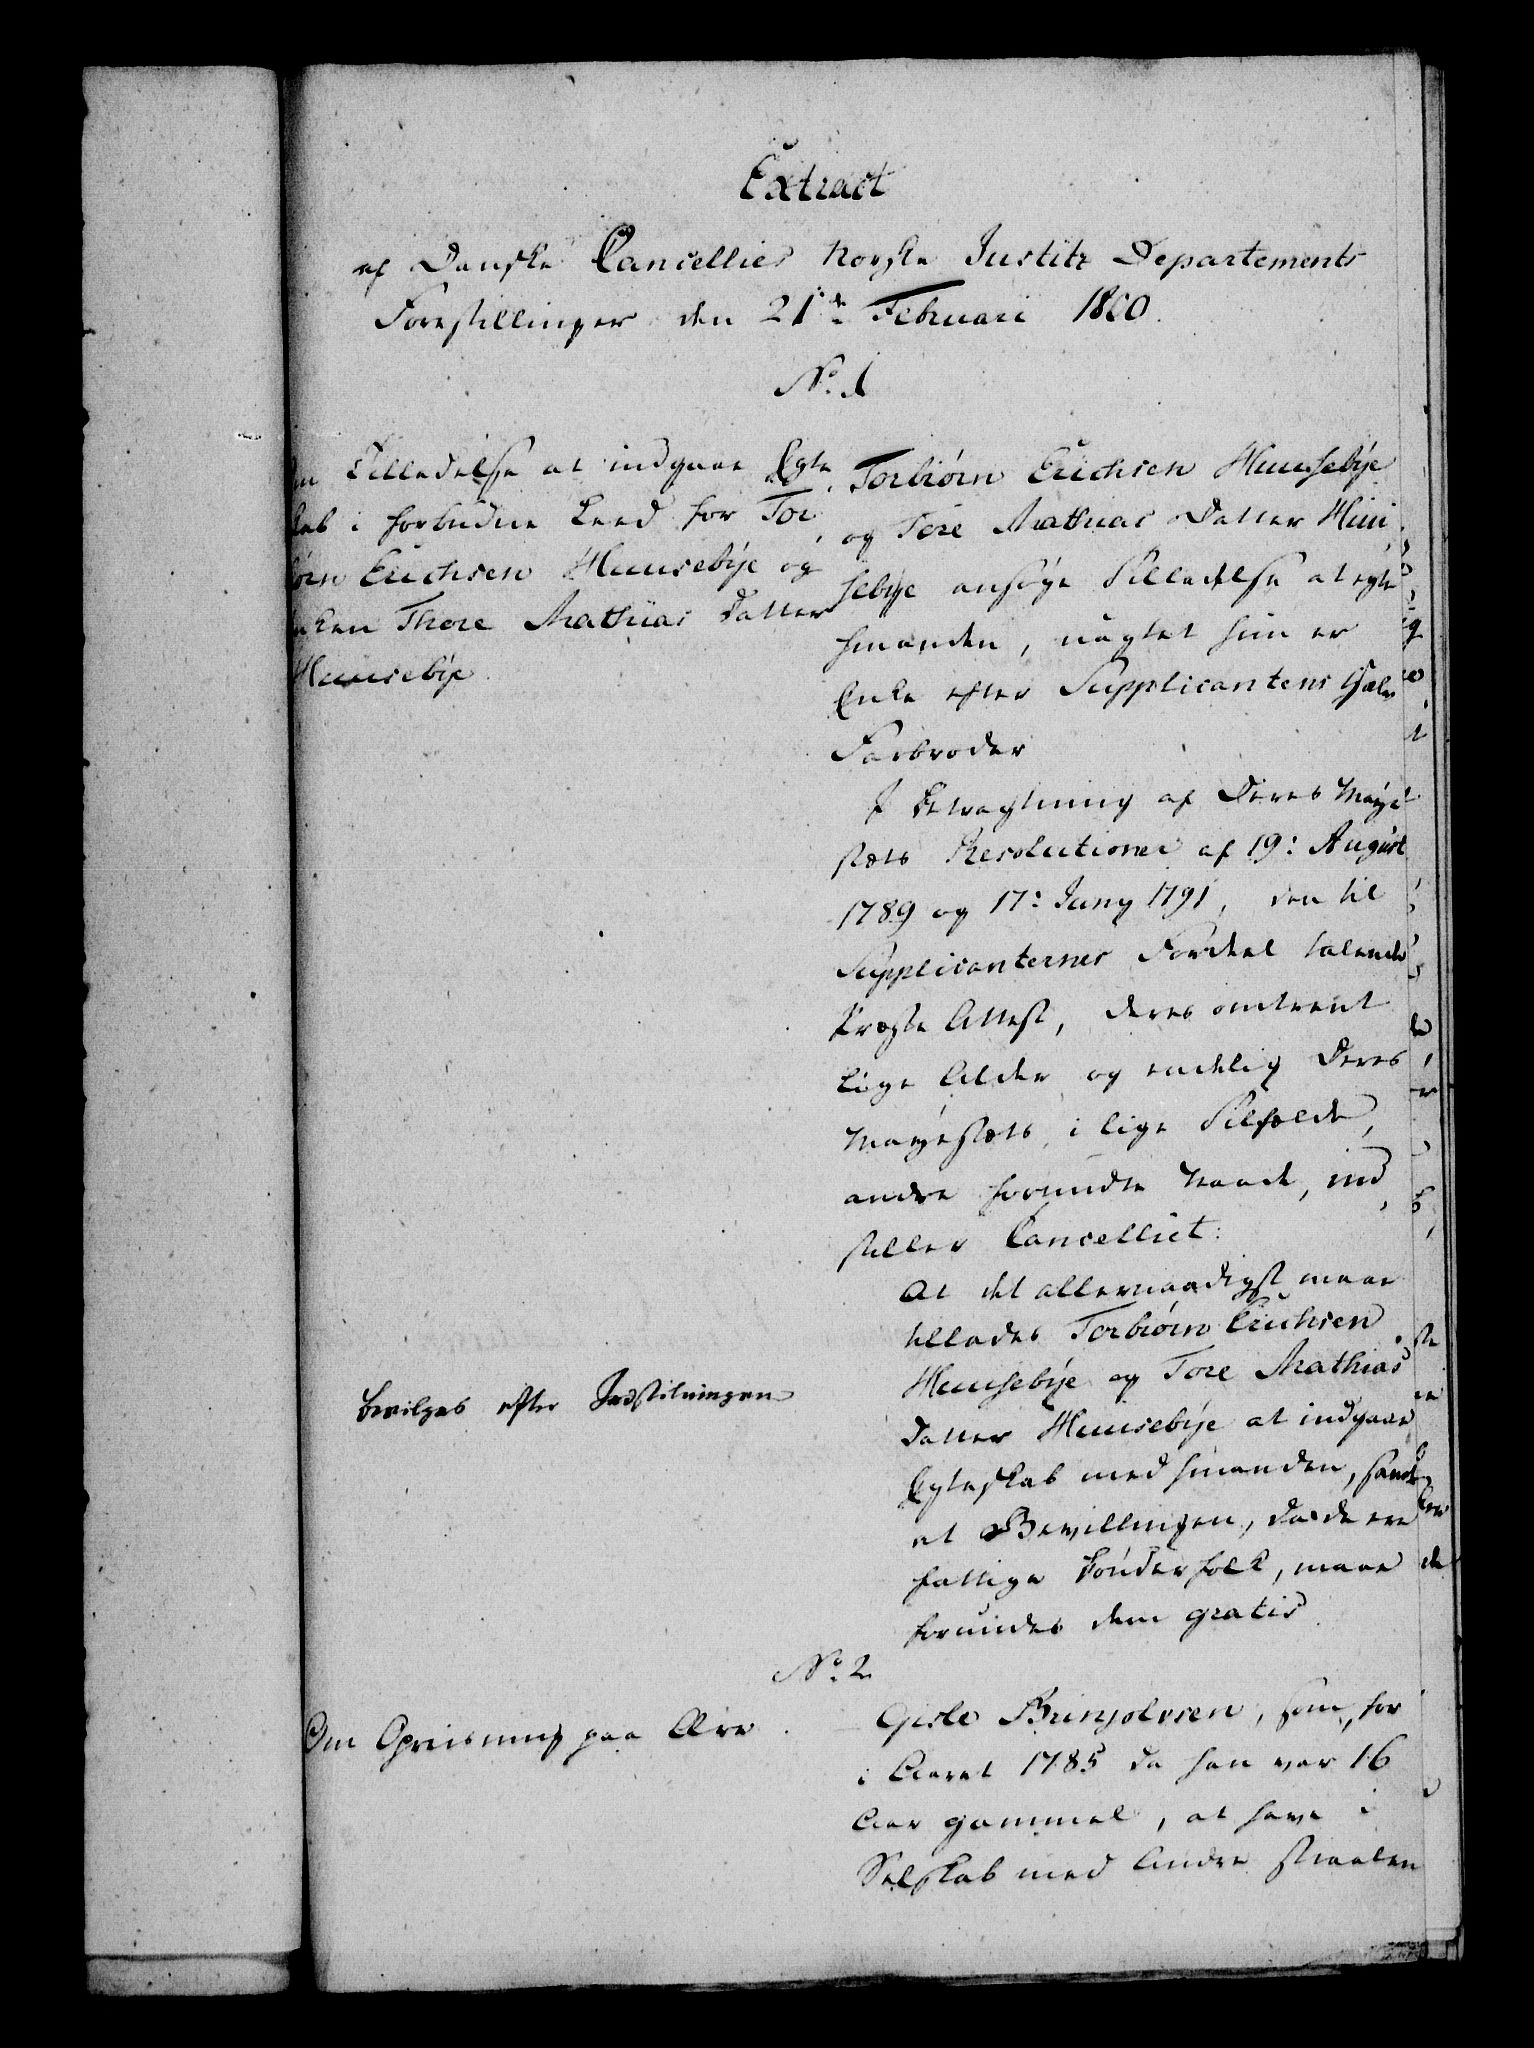 Extract
af Danske Cancellies Norske Justitz Departements
Forestillinger den 21de Februari 1800.
No. 1
Tilladelse at indgaae Egte
skab i forbudne Leed for Tor
biørn Erichsen Huusebÿe og
Enken Thore Mathias Datter
Huusebÿe
Torbiørn Erichsen Huusebÿe
og Tore Mathias Datter Huu
sebÿe ansøge Tilladelse at egte
hinanden, uagtet hun er
Enke efter Supplicantens Halv
Farbroder
I Betragtning af Deres Maje
stæts Resolutioner af 19: August
1789 og 17: Juny 1791, den til
Supplicanternes Fordeel talende
Præste Attest, deres omtrent
lige Alder og endelig Deres
Majestæts, i lige Tilfælde,
andre forundte Naade, ind
stiller Cancelliet:
At det allernaadigst maae
tillades Torbiørn Erichsen
Huusebÿe og Tore Mathias
Datter Huusebÿe at indgaae
Egteskab med hinanden, samt
at Bevillingen, da de ere
fattige Bønderfolk, maae
forundes dem gratis
Bevilges efter Indstillningen
No. 2
Om Opreisning paa Ære
Gisle Brinjolvsen, som, for
i Aaret 1785 da han var 16
Aar gammel, at have i
Selskab med Andre stiaalen